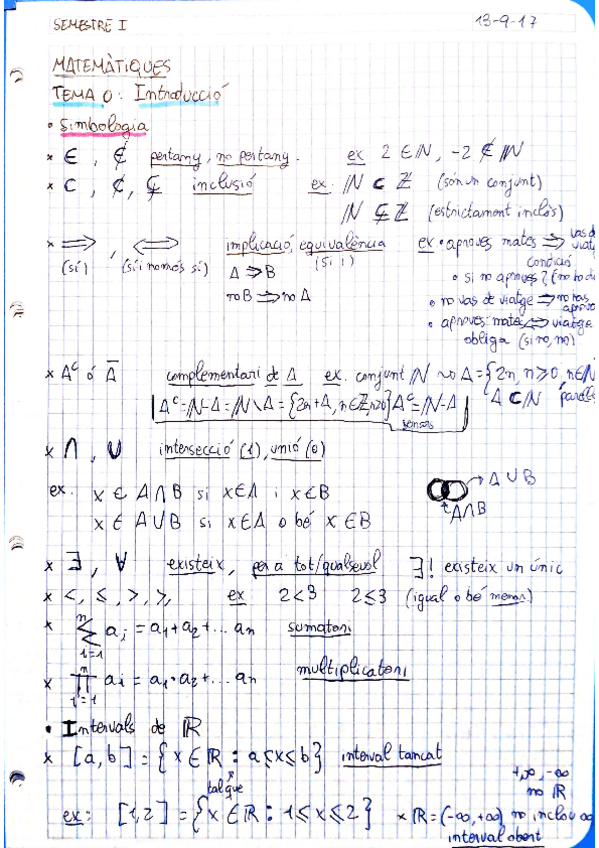 SEMESTRE I 13-9-17
MATEMÀTIQUES
TEMA 0: Introducció
• Simbologia
× ∈, ∉ pertany, no pertany. ex 2 ∈ ℕ, -2 ∉ ℕ
× ⊂, ⊄, ⊊ inclusió ex. ℕ ⊂ ℤ (són un conjunt)
ℕ ⊊ ℤ (estrictament inclòs)
× ⟹, ⟺ implicació, equivalència ex • aproves mates ⟹ vas de
(sí) (síi només sí) (sii) viatg
A ⟹ B condició
• si no aproves? (no ho d
no B ⟹ no A • no vas de viatge ⟹ no has
aprova
• aproves mates ⟺ viatge
obliga (si no, no)
× Aᶜ ó Ā complementari de A ex. conjunt ℕ ⇝ A = {2n, n≥0, n∈ℕ
Aᶜ=ℕ-A=ℕ\A={2n+1, n∈ℤ, n≥0} Aᶜ=ℕ-A A ⊂ ℕ
senars
× ∩, ∪ intersecció (i), unió (o)
ex. x ∈ A∩B si x∈A i x∈B A∪B
x ∈ A∪B si x∈A o bé x∈B A∩B
× ∃, ∀ existeix, per a tot/qualsevol ∃! existeix un únic
× <, ≤, >, ≥, ex 2<3 2≤3 (igual o bé menor)
× n∑i=1 aᵢ = a₁+a₂+...aₙ sumatori
× n∏i=1 aᵢ = a₁·a₂+...aₙ multiplicatori
• Intervals de ℝ
× [a,b] = {x∈ℝ : a≤x≤b} interval tancat
tal que +∞, -∞
no ℝ
ex: [1,2] = {x∈ℝ : 1≤x≤2} × ℝ=(-∞,+∞) no inclou ∞
interval obert